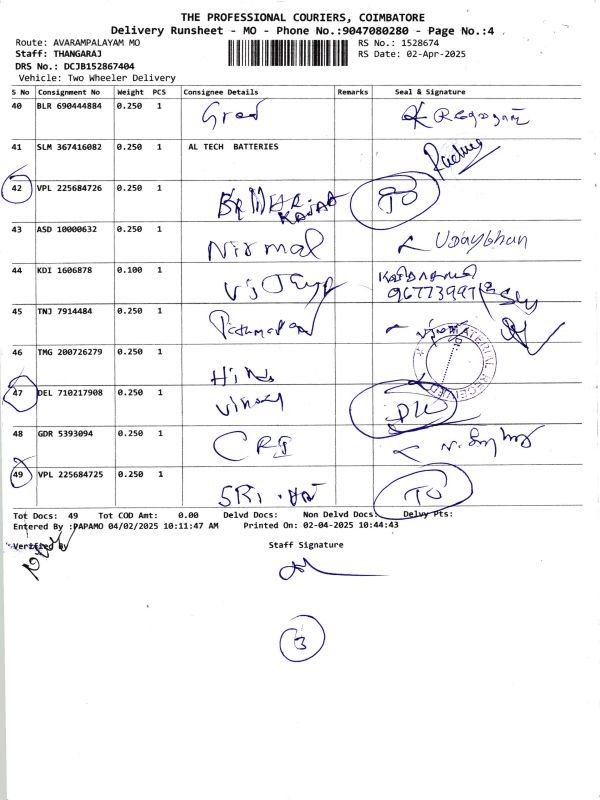 THE PROFESSIONAL COURIERS, COIMBATORE
Delivery Runsheet - MO - Phone No.:9047080280 - Page No.:4
Route: AVARAMPALAYAM MO RS No.: 1528674
Staff: THANGARAJ RS Date: 02-Apr-2025
DRS No.: DCJB152867404
Vehicle: Two Wheeler Delivery
S No Consignment No Weight PCS Consignee Details Remarks Seal & Signature
40 BLR 690444884 0.250 1
41 SLM 367416082 0.250 1 AL TECH BATTERIES
42 VPL 225684726 0.250 1 TO
43 ASD 10000632 0.250 1 Nirmal Udaybhan
44 KDI 1606878 0.100 1
45 TNJ 7914484 0.250 1
46 TMG 200726279 0.250 1
MATERIAL RECEIVED
47 DEL 710217908 0.250 1 DL
48 GDR 5393094 0.250 1 CRI
49 VPL 225684725 0.250 1 SRI TO
Tot Docs: 49 Tot COD Amt: 0.00 Delvd Docs: Non Delvd Docs: Delvy Pts:
Entered By :PAPAMO 04/02/2025 10:11:47 AM Printed On: 02-04-2025 10:44:43
Verified By Staff Signature
3